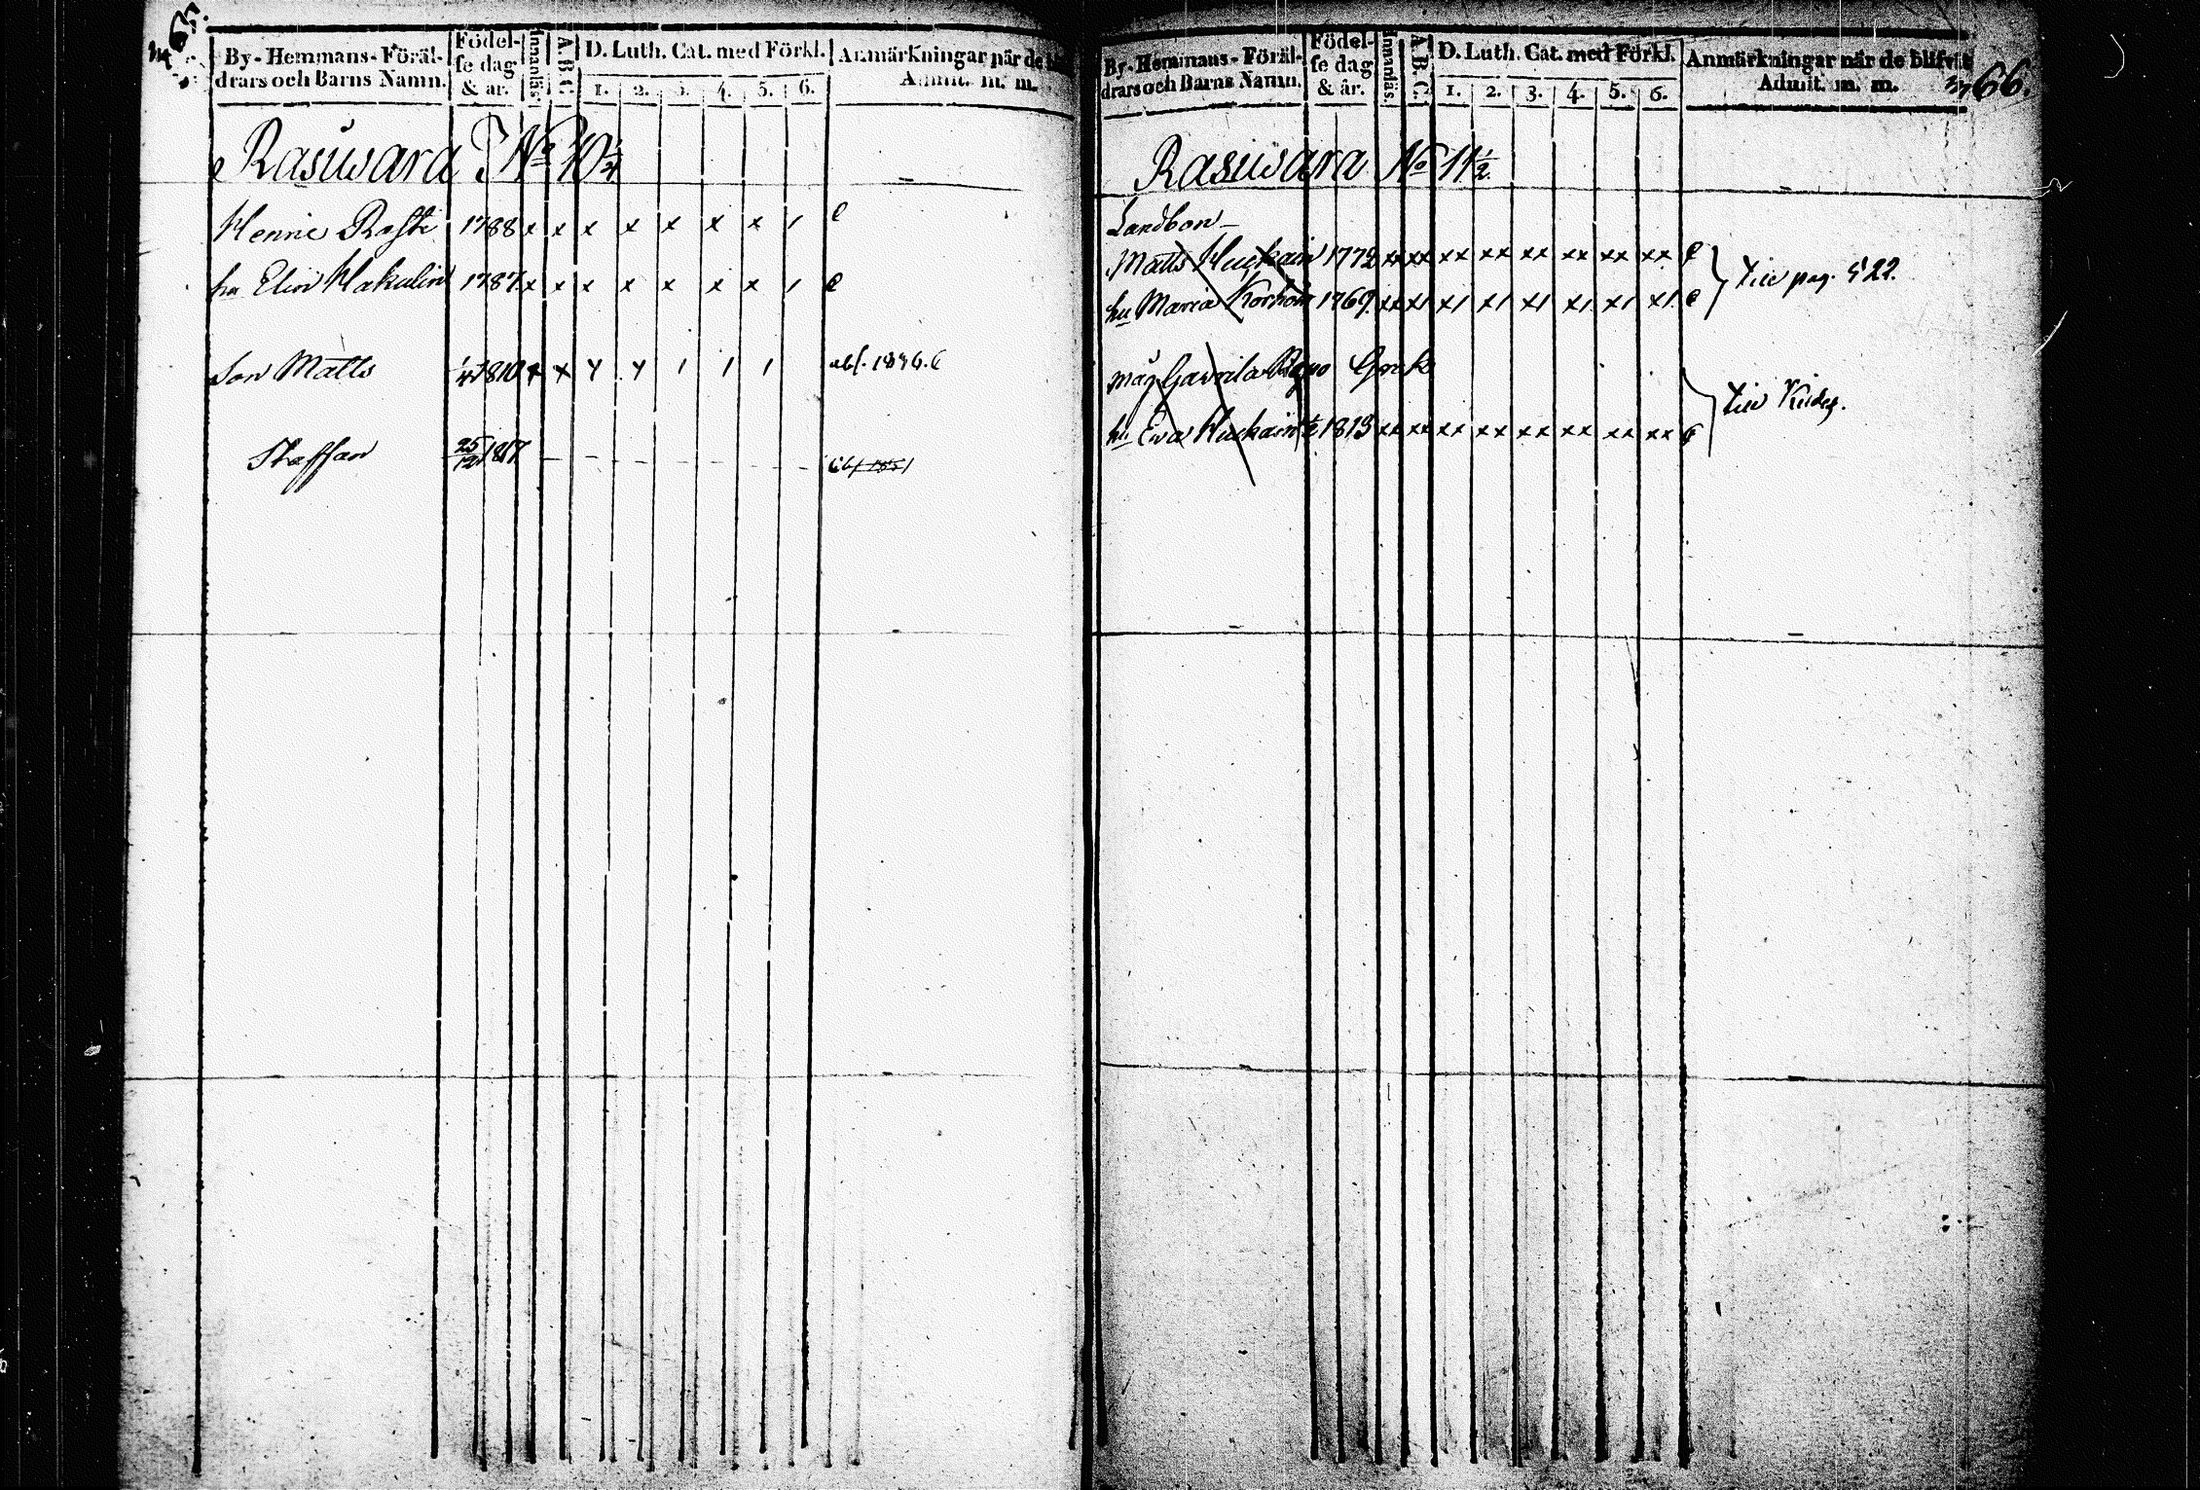 65.
By-Hemmans-Föräl-
drars och Barns Namn.
Födel-
se dag
& år.
Innanläs.
A.B.C.
D. Luth. Cat. med Förkl.
1. 2. 3. 4. 5. 6.
Anmärkningar när de
Admit. m. m.
Rasiwara No 10
Henric 1788 x x x x x x x 1
hu Elin Hakulin 1787 x x x x x x x 1
Son Matts 1810
Staffan 25/12 1817
66.
By-Hemmans-Föräl-
drars och Barns Namn.
Födel-
se dag
& år.
Innanläs.
A.B.C.
D. Luth. Cat. med Förkl.
1. 2. 3. 4. 5. 6.
Anmärkningar när de blifvit
Admit. m. m.
Rasiwara No 11 1/2.
Landbon
Matts Huckain 1772 xx xx xx xx xx xx xx xx
hu Maria Korhoin 1769. xx x1 x1 x1 x1 x1 x1 x1
till pag. 522.
måg Gavrila Grek
hu Ewa Huckain 1813 xx xx xx xx xx xx xx xx
till Kides.